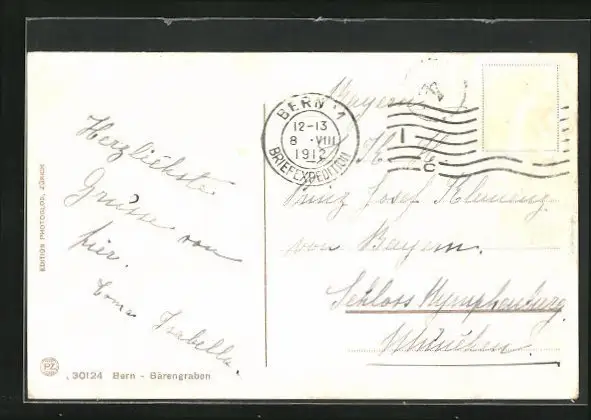 Herzlichste
Grüsse von
hier.
Isabella.
EDITION PHOTOGLOB, ZÜRICH
PZ
30124 Bern - Bärengraben
BERN 1
12-13
8 VIII
1912
BRIEFEXPEDITION
Bayern
Prinz Josef Klemens
von Bayern.
Schloss Nymphenburg
München.